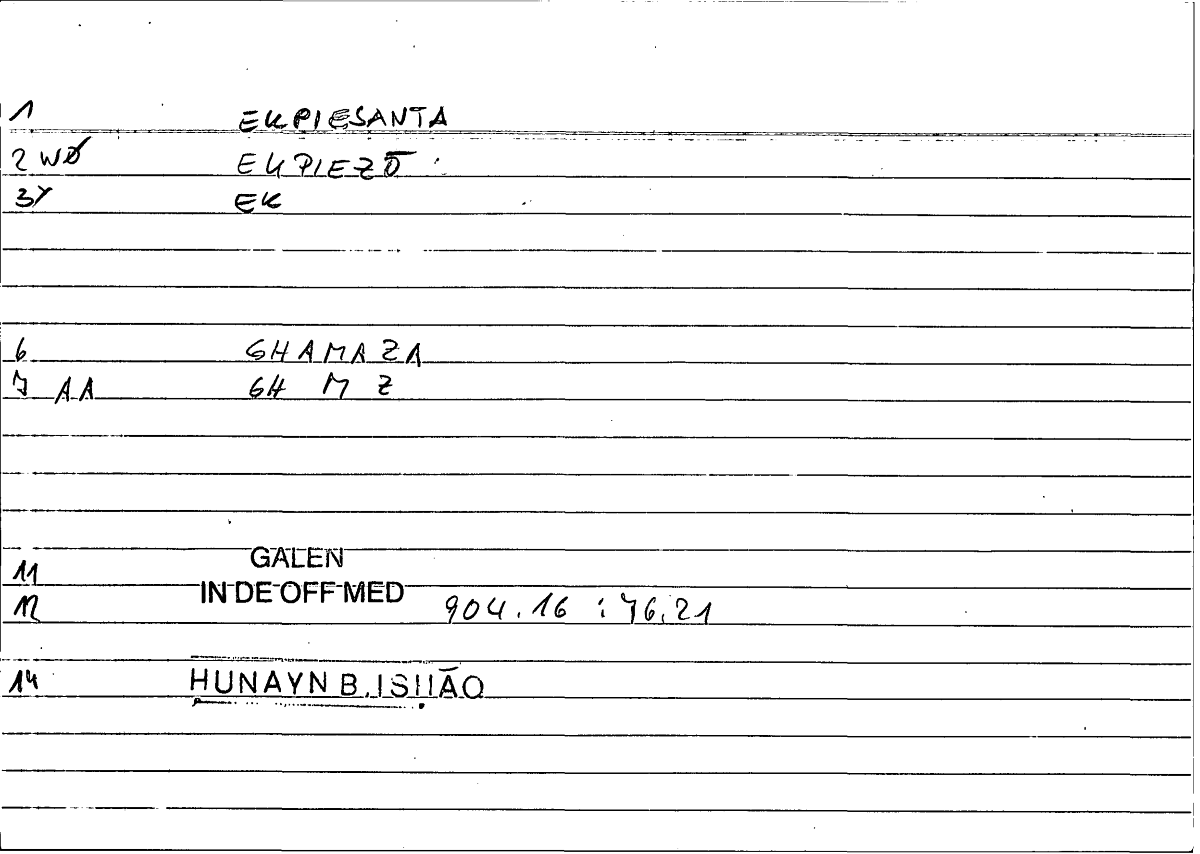 1 EKPIESANTA
2 WØ EKPIEZŌ
3Y EK
6 GHAMAZA
7 AA GH M Z
11 GALEN
12 IN DE OFF MED 904.16 : 76.21
14 HUNAYN B. ISḤĀQ